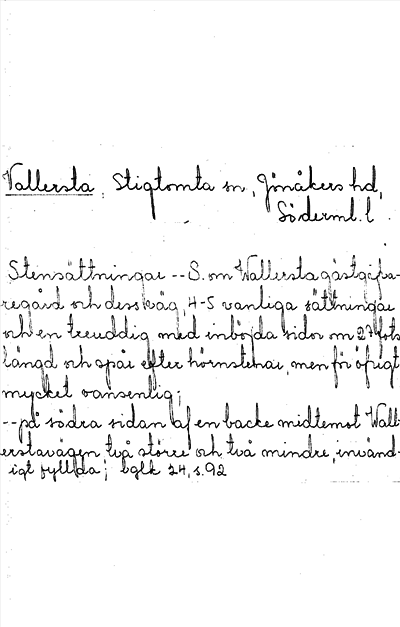 Vallersta, Stigtomta sn, Jönåkers hd,
Söderml. l
Stensättningar -- S. om Wallersta gästgifva-
regård och dess väg, 4-5 vanliga sättningar
och en treuddig med inböjda sidor om 27 fots
längd och spår efter hörnstenar, men för öfrigt
mycket vansenlig;
-- på södra sidan af en backe midtemot Wall-
erstavägen två större och två mindre, invänd-
igt fyllda; bglk 24, s. 92